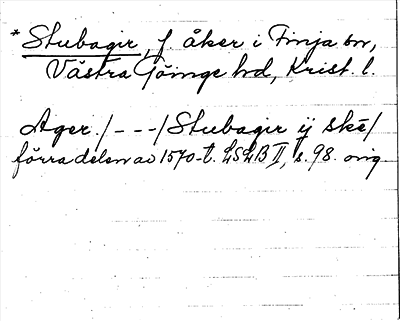 * Stubagir, f. åker i Finja sn,
Västra Göinge hd, Krist. l.
Ager. / - - - / Stubagir ij skē /
förra delen av 1570-t. LSLB II, s. 98. orig.